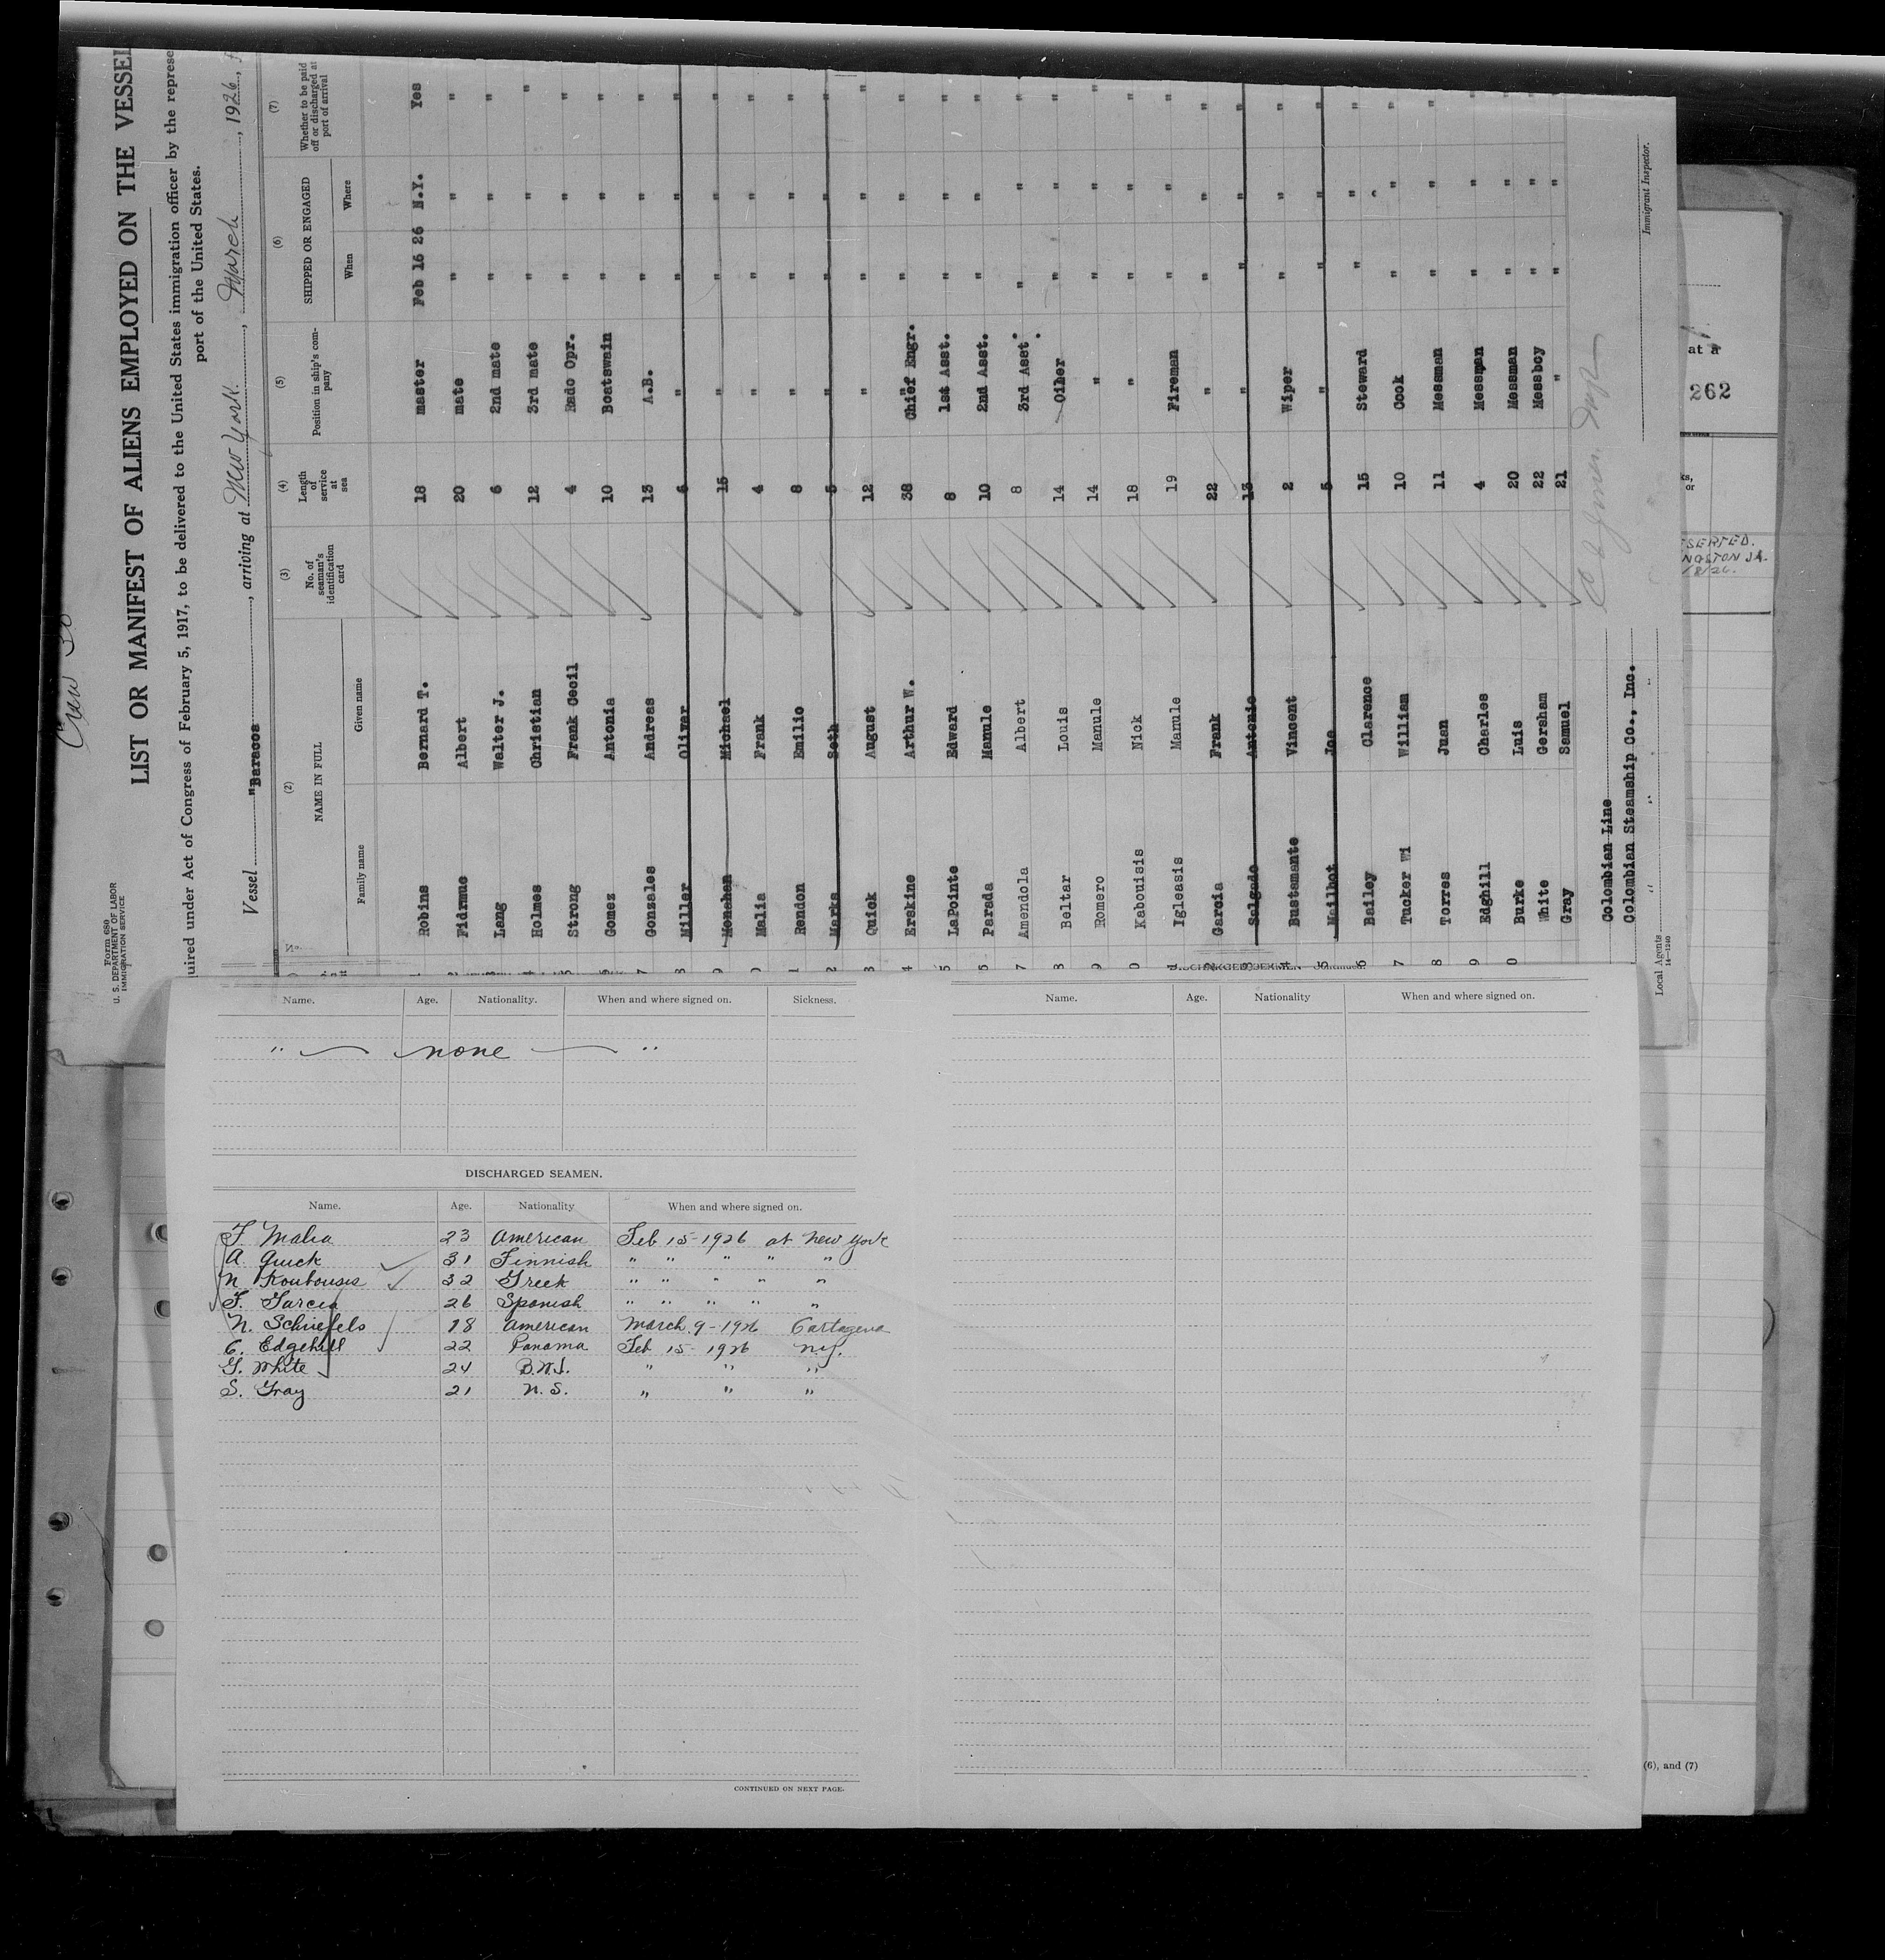 Crew
Form 689
U. S. DEPARTMENT OF LABOR
IMMIGRATION SERVICE
LIST OR MANIFEST OF ALIENS EMPLOYED ON THE VESSEL
uired under Act of Congress of February 5, 1917, to be delivered to the United States immigration officer by the represe
port of the United States.
Vessel "Baracoa , arriving at New York , March , 1926,
(2) (3) (4) (5) (6) (7)
NAME IN FULL No. of seaman's identification card Length of service at sea Position in ship's company SHIPPED OR ENGAGED Whether to be paid off or discharged at port of arrival
Family name Given name When Where
Robins Bernard T. 18 master Feb 16 26 N.Y. Yes
Fidzmuc Albert 20 mate " " "
Lang Walter J. 6 2nd mate " " "
Holmes Christian 12 3rd mate " " "
Strong Frank Cecil 4 Rado Opr. " " "
Gomez Antonia 10 Boatswain " " "
Gonzales Andreas 13 A.B. " " "
Miller Oliver 6 " " " "
Monahan Michael 15 " " " "
Malia Frank 4 " " " "
Rendon Emilio 8 " " " "
Marks Seth 5 " " " "
Quick August 12 " " " "
Erskine Arthur W. 38 Chief Engr. " " "
LaPointe Edward 8 1st Asst. " " "
Parada Manule 10 2nd Asst. " " "
Amendola Albert 8 3rd Asst. " " "
Beltar Louis 14 Oiher " " "
Romero Manule 14 " " " "
Kabouisis Nick 18 " " " "
Igleasis Manule 19 Fireman " " "
Garcia Frank 22 " " " "
Salgado Antonio 13 " " " "
Bustamante Vincent 2 Wiper " " "
Mailhot Joe 5 " " " "
Bailey Clarence 15 Steward " " "
Tucker Wi William 10 Cook " " "
Torres Juan 11 Messman " " "
Edghill Charles 4 Messman " " "
Burke Luis 20 Messman " " "
White Gersham 22 Messboy " " "
Gray Samuel 21 " " "
Colombian Line
Colombian Steamship Co., Inc.
Local Agents
14—1240
Immigrant Inspector.
at a
262
NGSTON JA.
(6), and (7)
Name. Age. Nationality. When and where signed on. Sickness.
" none "
DISCHARGED SEAMEN.
Name. Age. Nationality When and where signed on.
F. Malia 23 American Feb 15-1926 at New York
A. Quick 31 Finnish " " " " "
N. Koubousis 32 Greek " " " " "
F. Garcia 26 Spanish " " " " "
N. Schriefels 18 American March 9-1926 Cartagena
C. Edgehill 22 Panama Feb 15- 1926 N.Y.
G. White 24 B.W.I. " " "
S. Gray 21 N.S. " " "
CONTINUED ON NEXT PAGE.
Name. Age. Nationality When and where signed on.